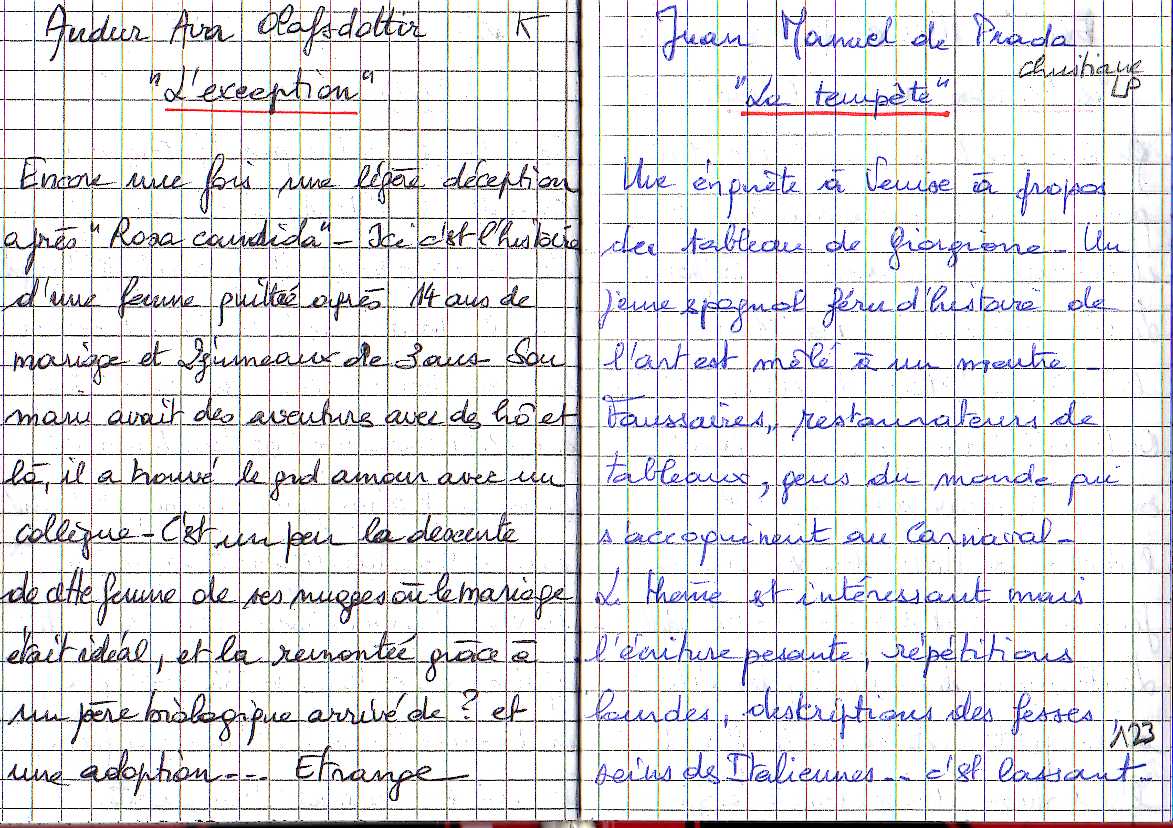 Audur Ava Olafsdottir K
"L'exception"
Encore une fois une légère déception
après "Rosa candida" - Ici c'est l'histoire
d'une femme quittée après 14 ans de
mariage et 2 jumeaux de 3 ans - Son
mari avait des aventures avec des hô et
là, il a trouvé le grd amour avec un
collègue - C'est un peu la descente
de cette femme de ses nuages où le mariage
était idéal, et la remontée grâce à
un père biologique arrivé de ? et
une adoption --- Etrange -
Juan Manuel de Prada
Christiane
LP
"La tempête"
Une enquête à Venise à propos
du tableau de Giorgione - Un
jeune espagnol féru d'histoire de
l'art est mêlé à un meutre -
Faussaires, restaurateurs de
tableaux, gens du monde qui
s'accoquinent au Carnaval -
Le thème est intéressant mais
l'écriture pesante, répétitions
lourdes, descriptions des fesses,
123
seins des Italiennes -- c'est lassant -